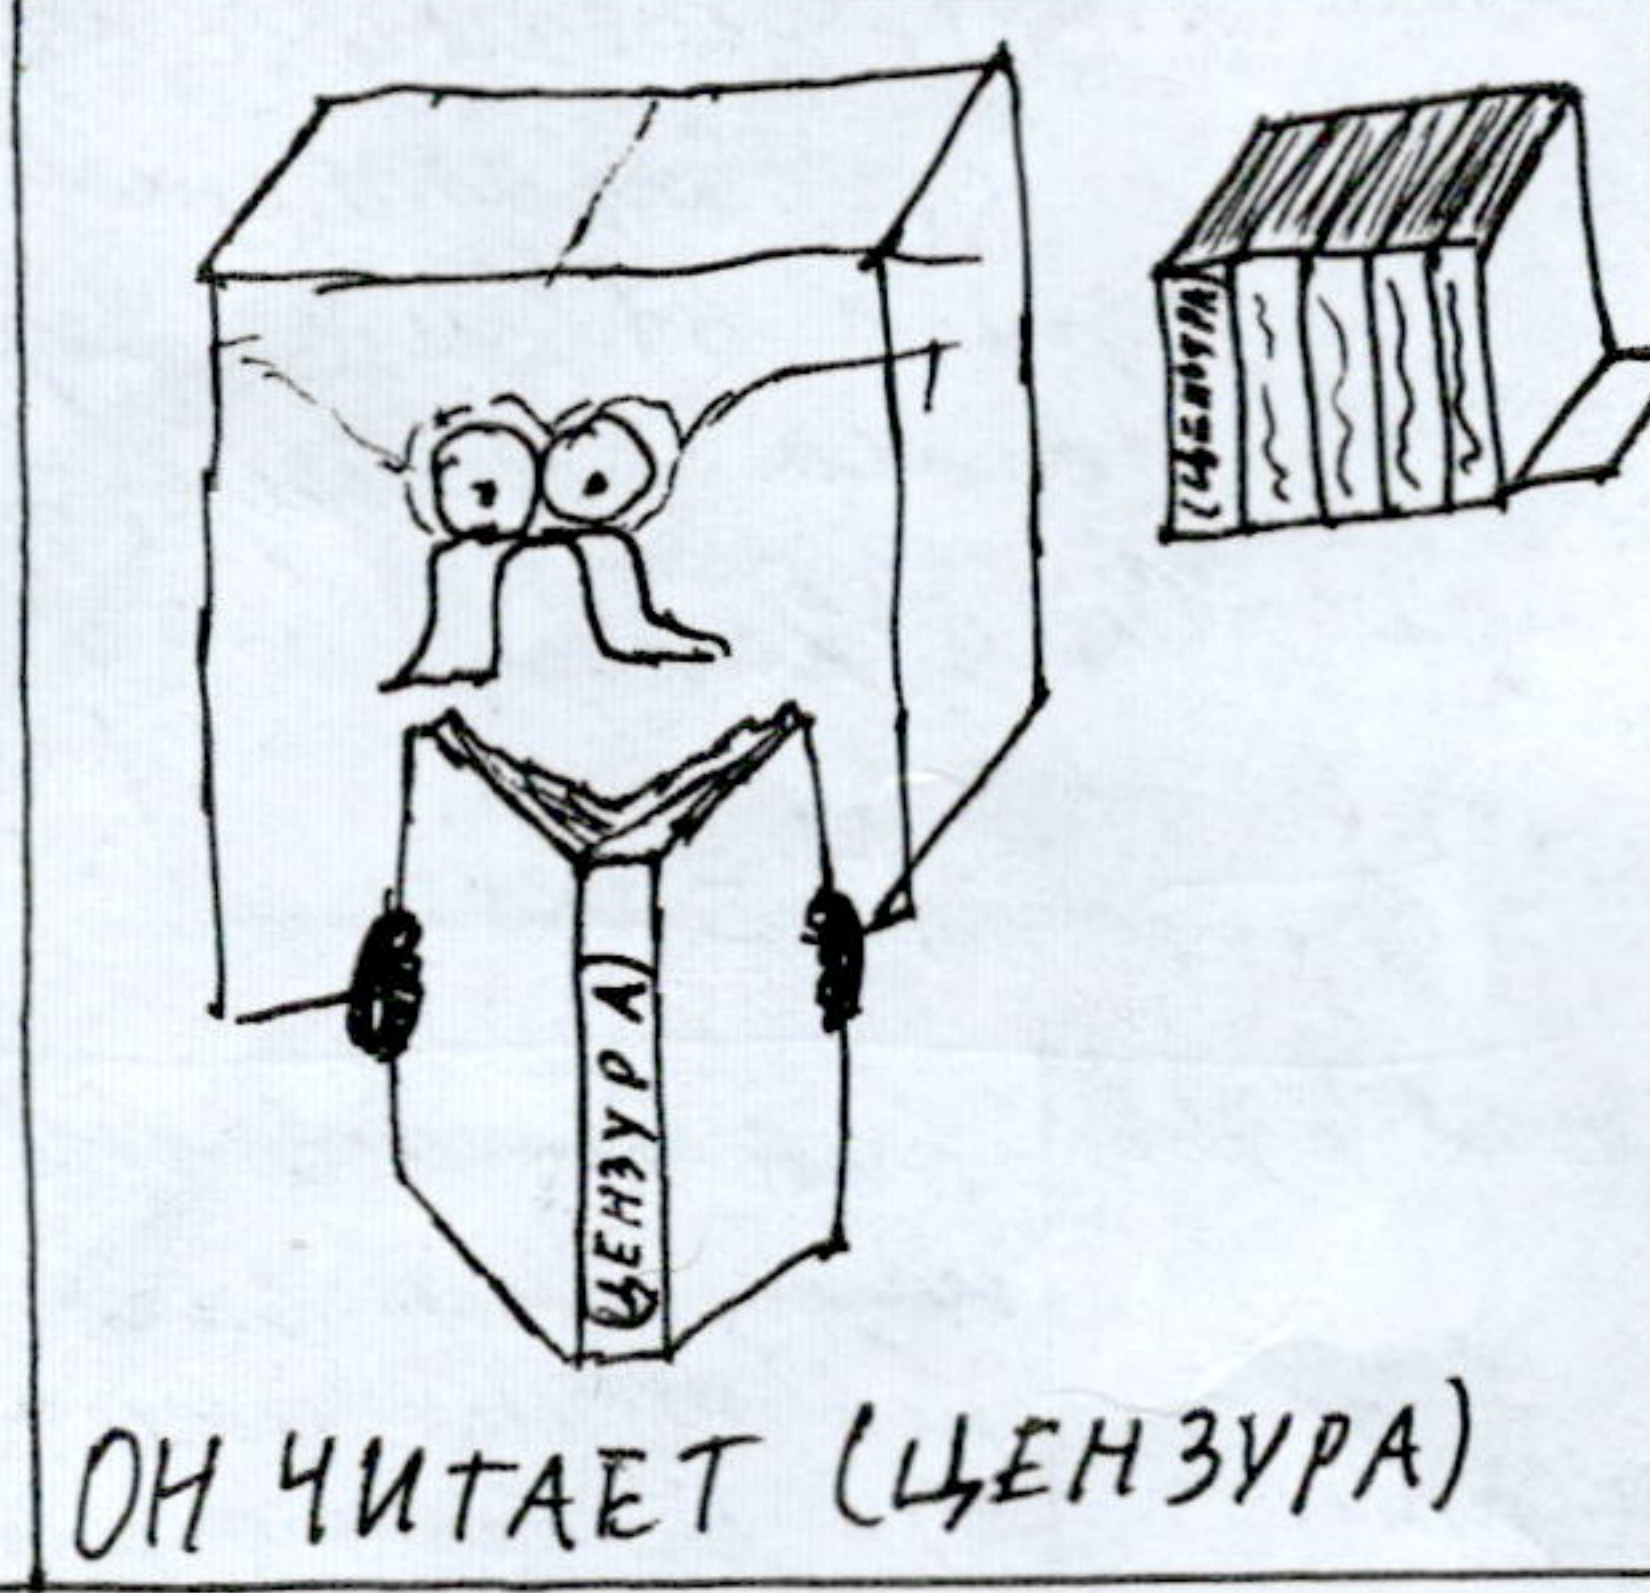 (ЦЕНЗУРА)
(ЦЕНЗУРА)
ОН ЧИТАЕТ (ЦЕНЗУРА)